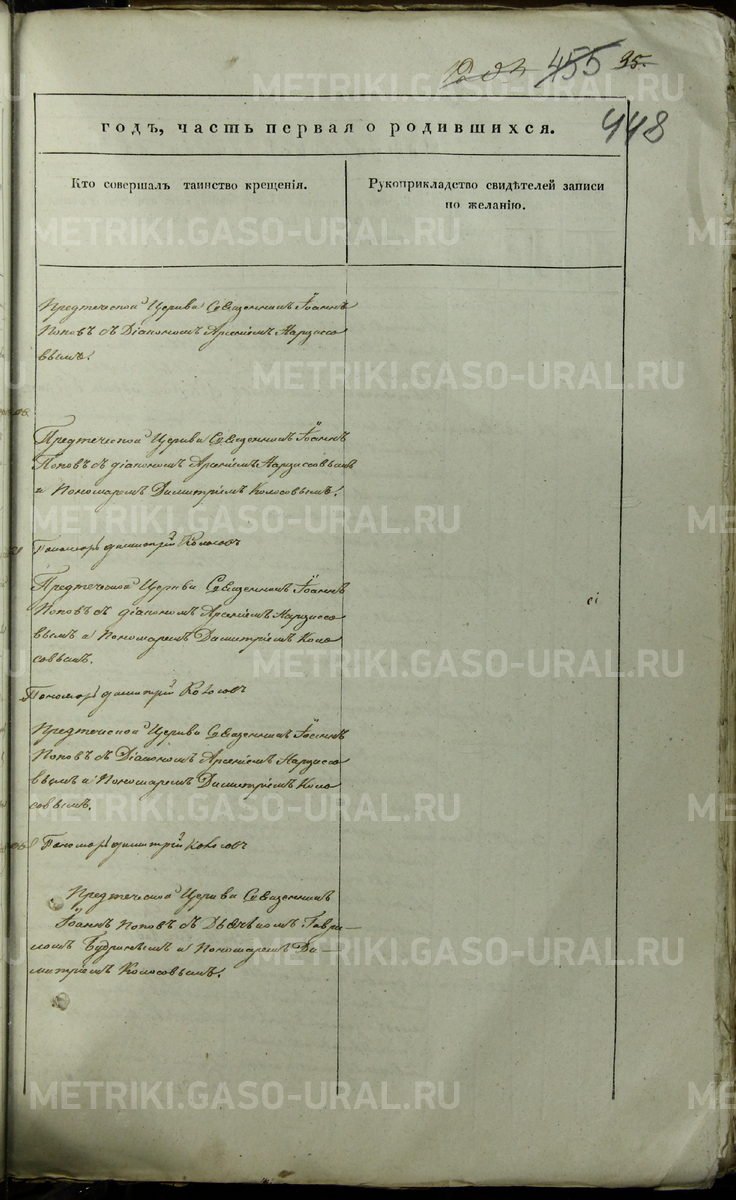 455 95.
448
годъ, часть первая о родившихся.
Кто совершалъ таинство крещенія.
Рукоприкладство свидѣтелей записи
по желанію.
Предтеческой Церкви Священникъ Іоаннъ
Поповъ съ Діакономъ Арсеніемъ Нарциссо
вымъ.
Предтеческой Церкви Священникъ Іоаннъ
Поповъ съ діакономъ Арсеніемъ Нарциссовымъ
и Пономаремъ Димитріемъ Колосовымъ.
Пономарь димитрій Колосовъ
Предтеческой Церкви Священникъ Іоаннъ
Поповъ съ діакономъ Арсеніемъ Нарциссо
вымъ и Пономаремъ Димитріемъ Коло
совымъ.
Пономарь димитрій Колосовъ
Предтеческой Церкви Священникъ Іоаннъ
Поповъ съ Діакономъ Арсеніемъ Нарциссо
вымъ и Пономаремъ Димитріемъ Коло
совымъ.
Пономарь димитрій Колосовъ
Предтеческой Церкви Священникъ
Іоаннъ Поповъ съ Дьячкомъ Гаври-
ломъ и Пономаремъ Ди-
митріемъ Колосовымъ.
METRIKI.GASO-URAL.RU